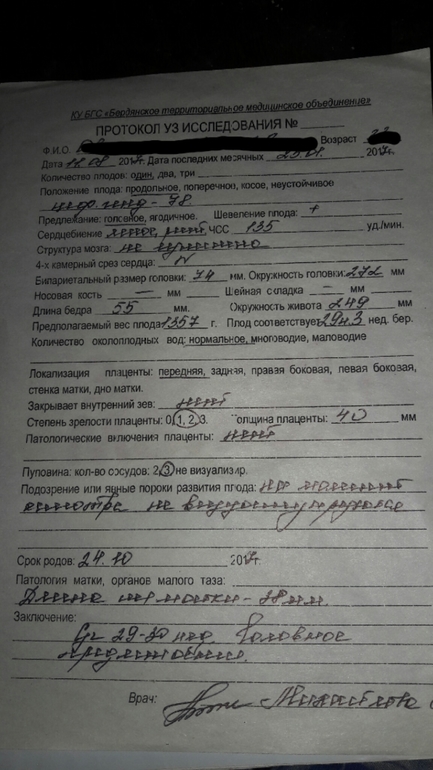 КУ БГС «Бердянское территориальное медицинское объединение»
ПРОТОКОЛ УЗ ИССЛЕДОВАНИЯ №
Ф.И.О. Возраст
Дата 11.08 2017г. Дата последних месячных 2017г.
Количество плодов: один, два, три
Положение плода: продольное, поперечное, косое, неустойчивое
78
Предлежание: головное, ягодичное. Шевеление плода: +
Сердцебиение ясное, ЧСС 135 уд./мин.
Структура мозга: не изменена
4-х камерный срез сердца: N
Бипариетальный размер головки: 74 мм. Окружность головки: 272 мм
Носовая кость — мм Шейная складка — мм
Длина бедра 55 мм. Окружность живота 249 мм
Предполагаемый вес плода 1357 г. Плод соответствует 29н.3 нед. бер.
Количество околоплодных вод: нормальное, многоводие, маловодие
Локализация плаценты: передняя, задняя, правая боковая, левая боковая,
стенка матки, дно матки.
Закрывает внутренний зев: нет
Степень зрелости плаценты: 0, 1, 2, 3. Толщина плаценты: 40 мм
Патологические включения плаценты: нет
Пуповина: кол-во сосудов: 2, 3 не визуализир.
Подозрение или явные пороки развития плода: на момент
осмотра не
Срок родов: 24.10 2017г.
Патология матки, органов малого таза:
Длина шейки матки - 38 мм.
Заключение:
Б-ть 29-30 нед. Головное
предлежание.
Врач: